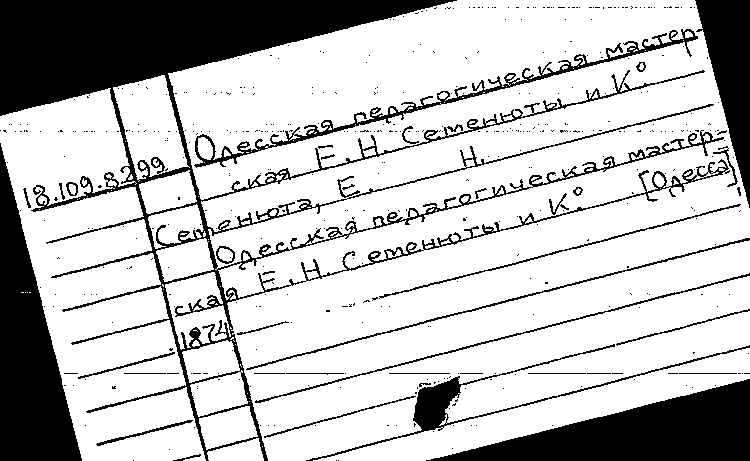 18.109.8299 Одесская педагогическая мастер-
ская Е. Н. Сетенюты и К°
Сетенюта, Е. Н.
Одесская педагогическая мастер-
ская Е. Н. Сетенюты и К° [Одесса]
1874